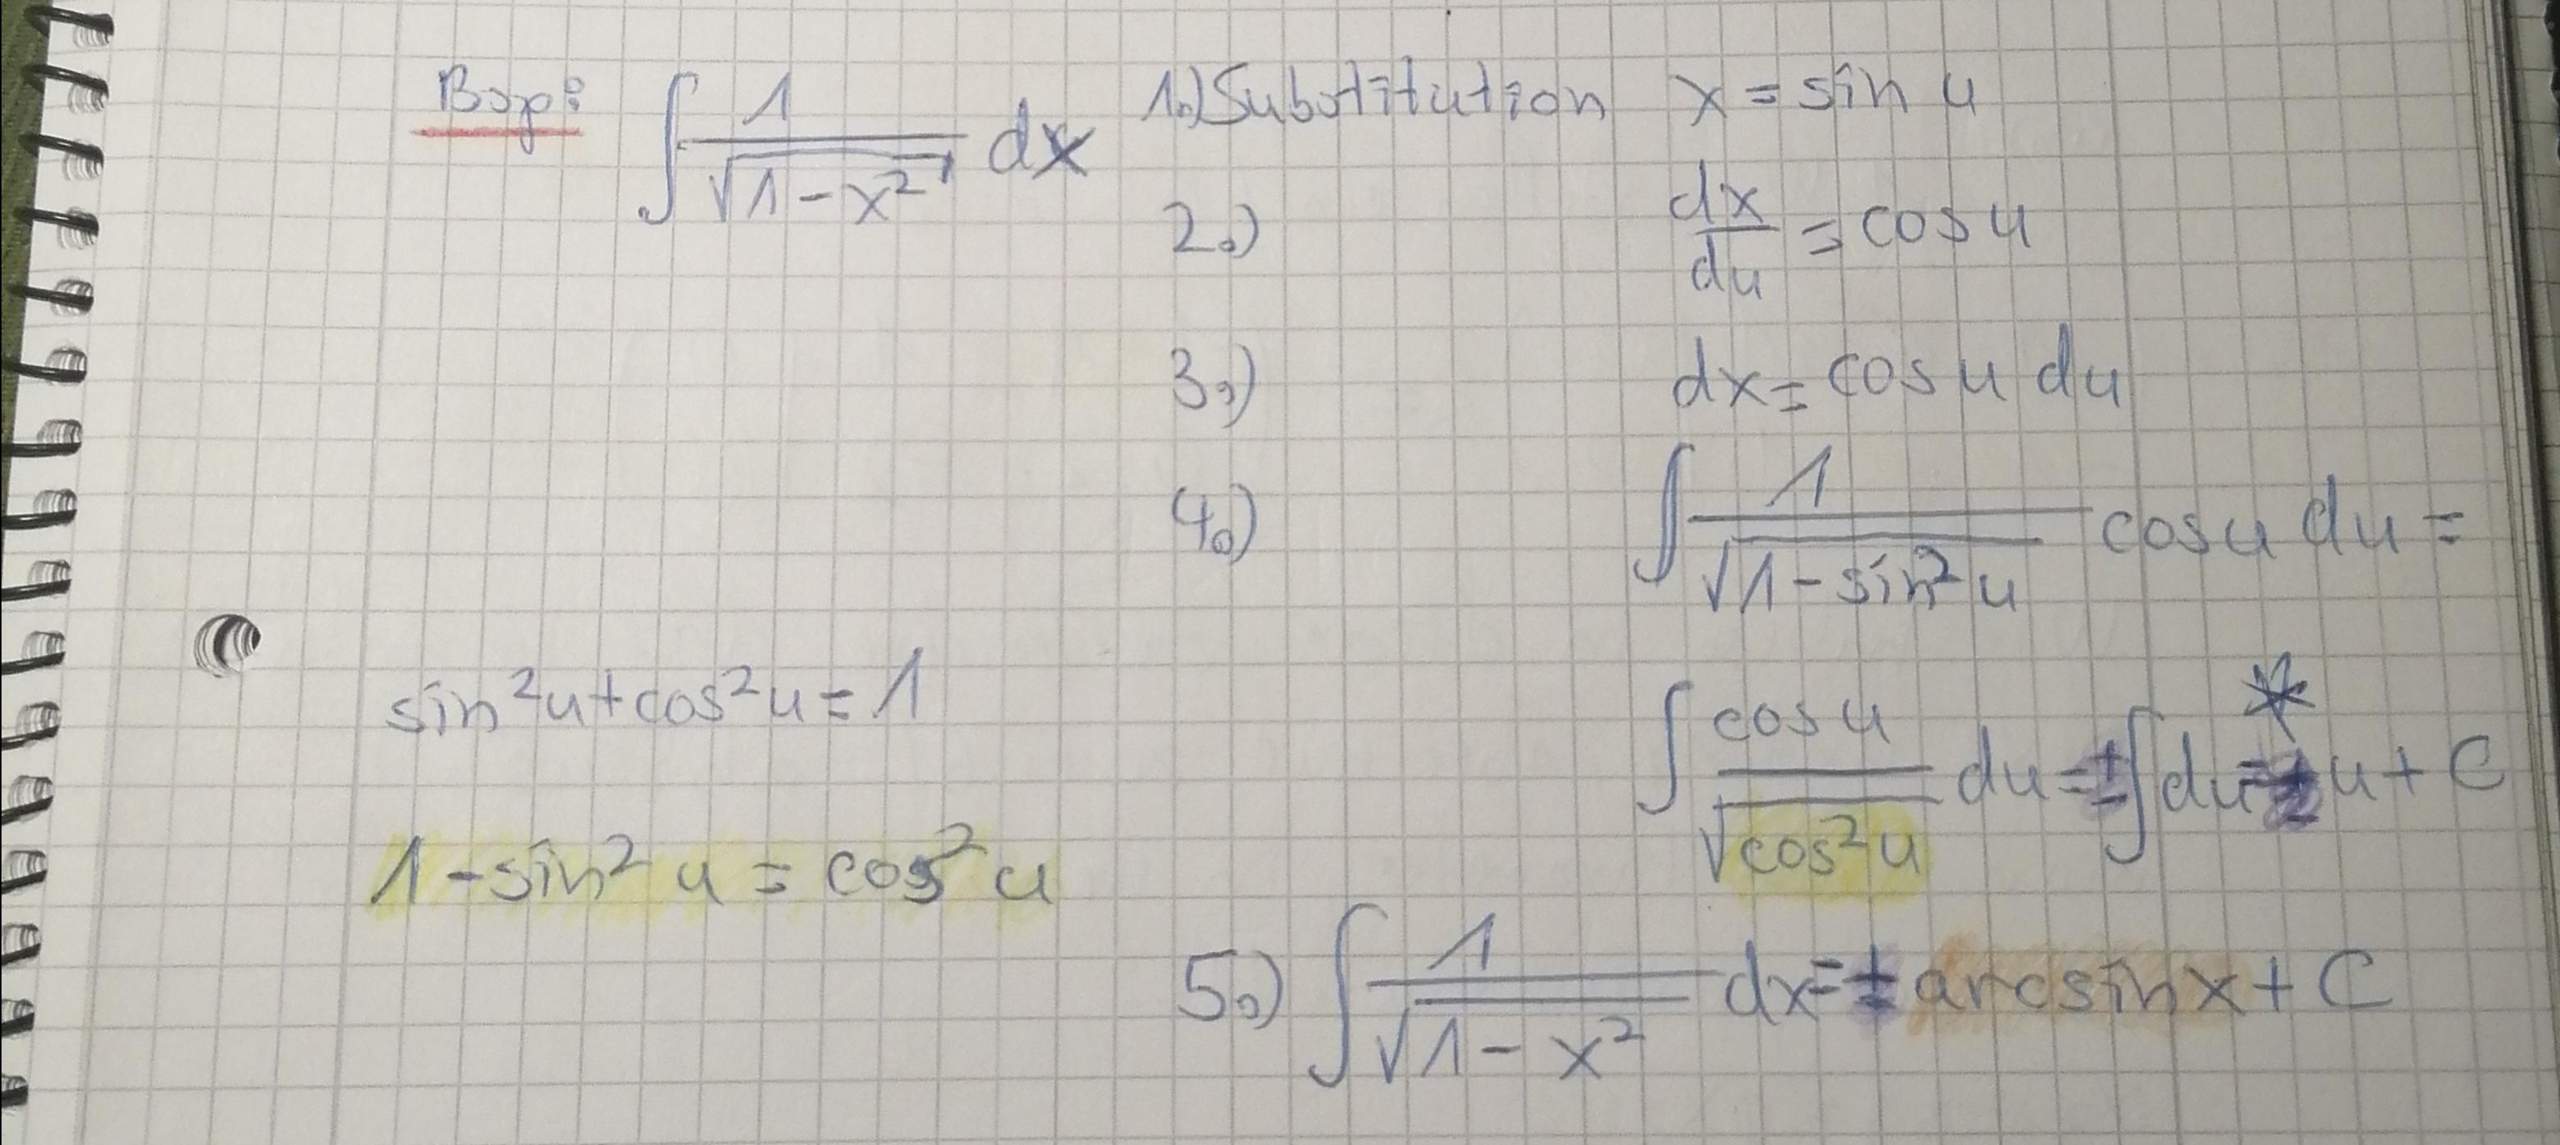 Bsp: ∫ 1/√(1-x²) dx 1.) Substitution x = sin u
2.) dx/du = cos u
3.) dx = cos u du
4.) ∫ 1/√(1-sin²u) cos u du =
sin²u + cos²u = 1
∫ cos u/√(cos²u) du = ± ∫ du = ± u + C *
1 - sin²u = cos²u
5.) ∫ 1/√(1-x²) dx = ± arcsin x + C